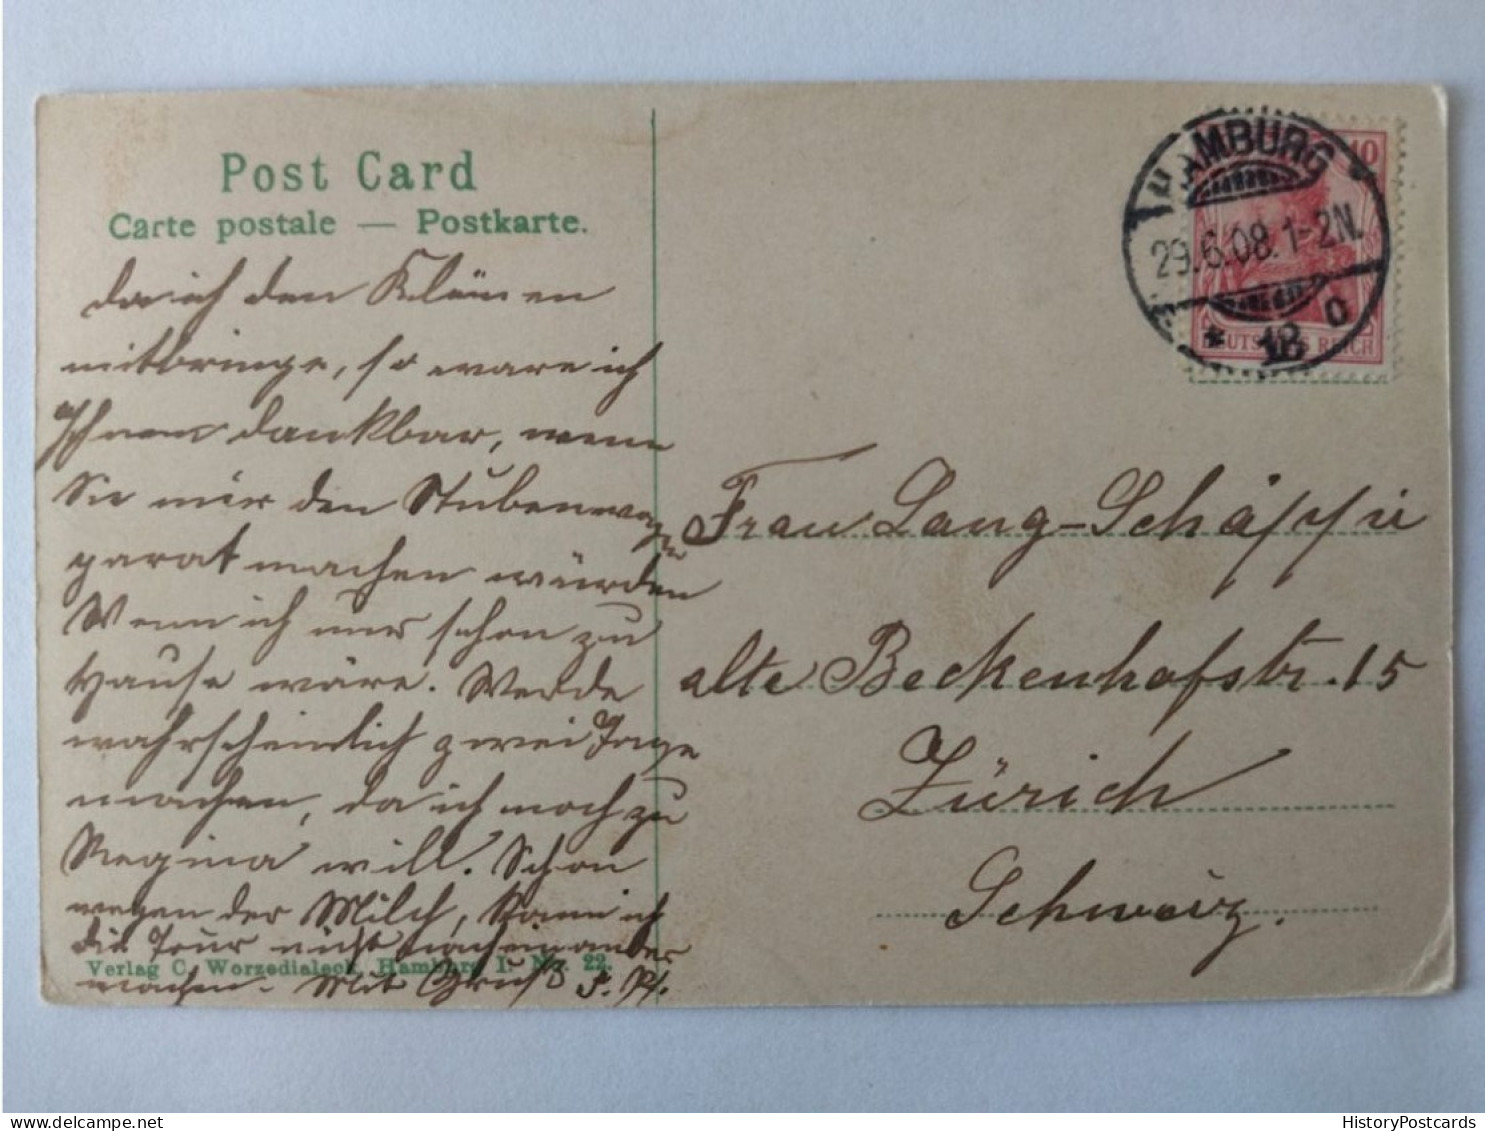 Post Card
Carte postale — Postkarte.
da ich den Kleinen
mitbringe, so wäre ich
Ihnen dankbar, wenn
Sie mir den Stubenwagen
parat machen würden
Wenn ich nur schon zu
Hause wäre. Werde
wahrscheinlich zwei Tage
machen, da ich noch zu
Regina will. Schon
wegen der Milch, kann ich
die Tour nicht nacheinander
machen. Mit Gruß
Verlag C. Worzedialeck, Hamburg I. No. 22.
HAMBURG
29.6.08.1-2N.
* 18 o
10
DEUTSCHES REICH
Frau Lang-Schäppi
alte Beckenhofstr. 15
Zürich
Schweiz.
HistoryPostcards.com